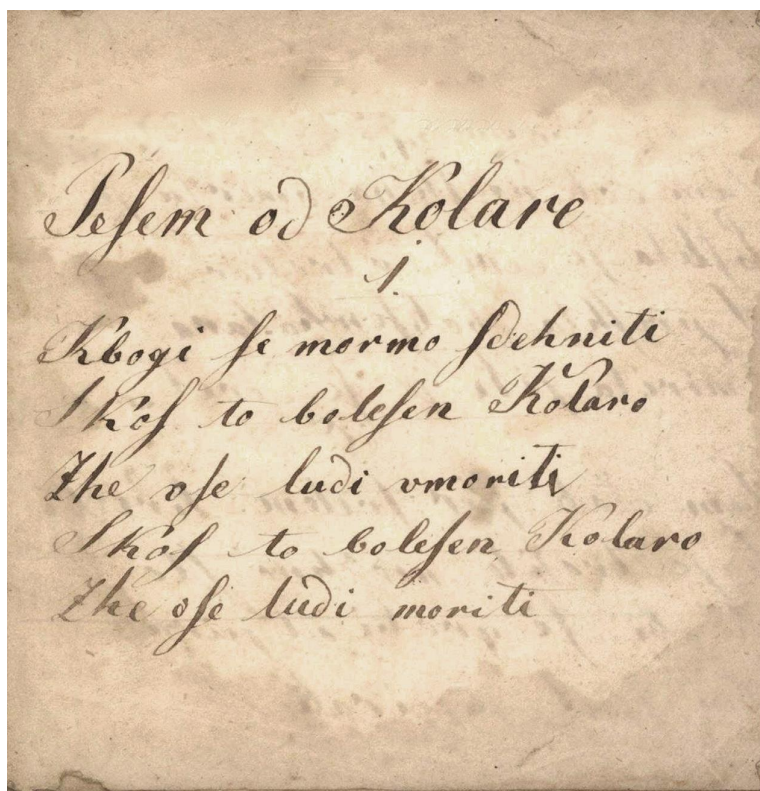 Peſem od Kolare
1
Kbogi ſe mormo ſdehniti
Skoſ to boleſen Kolaro
Zhe vſe ludi vmoriti
Skoſ to boleſen Kolaro
Zhe vſe ludi moriti